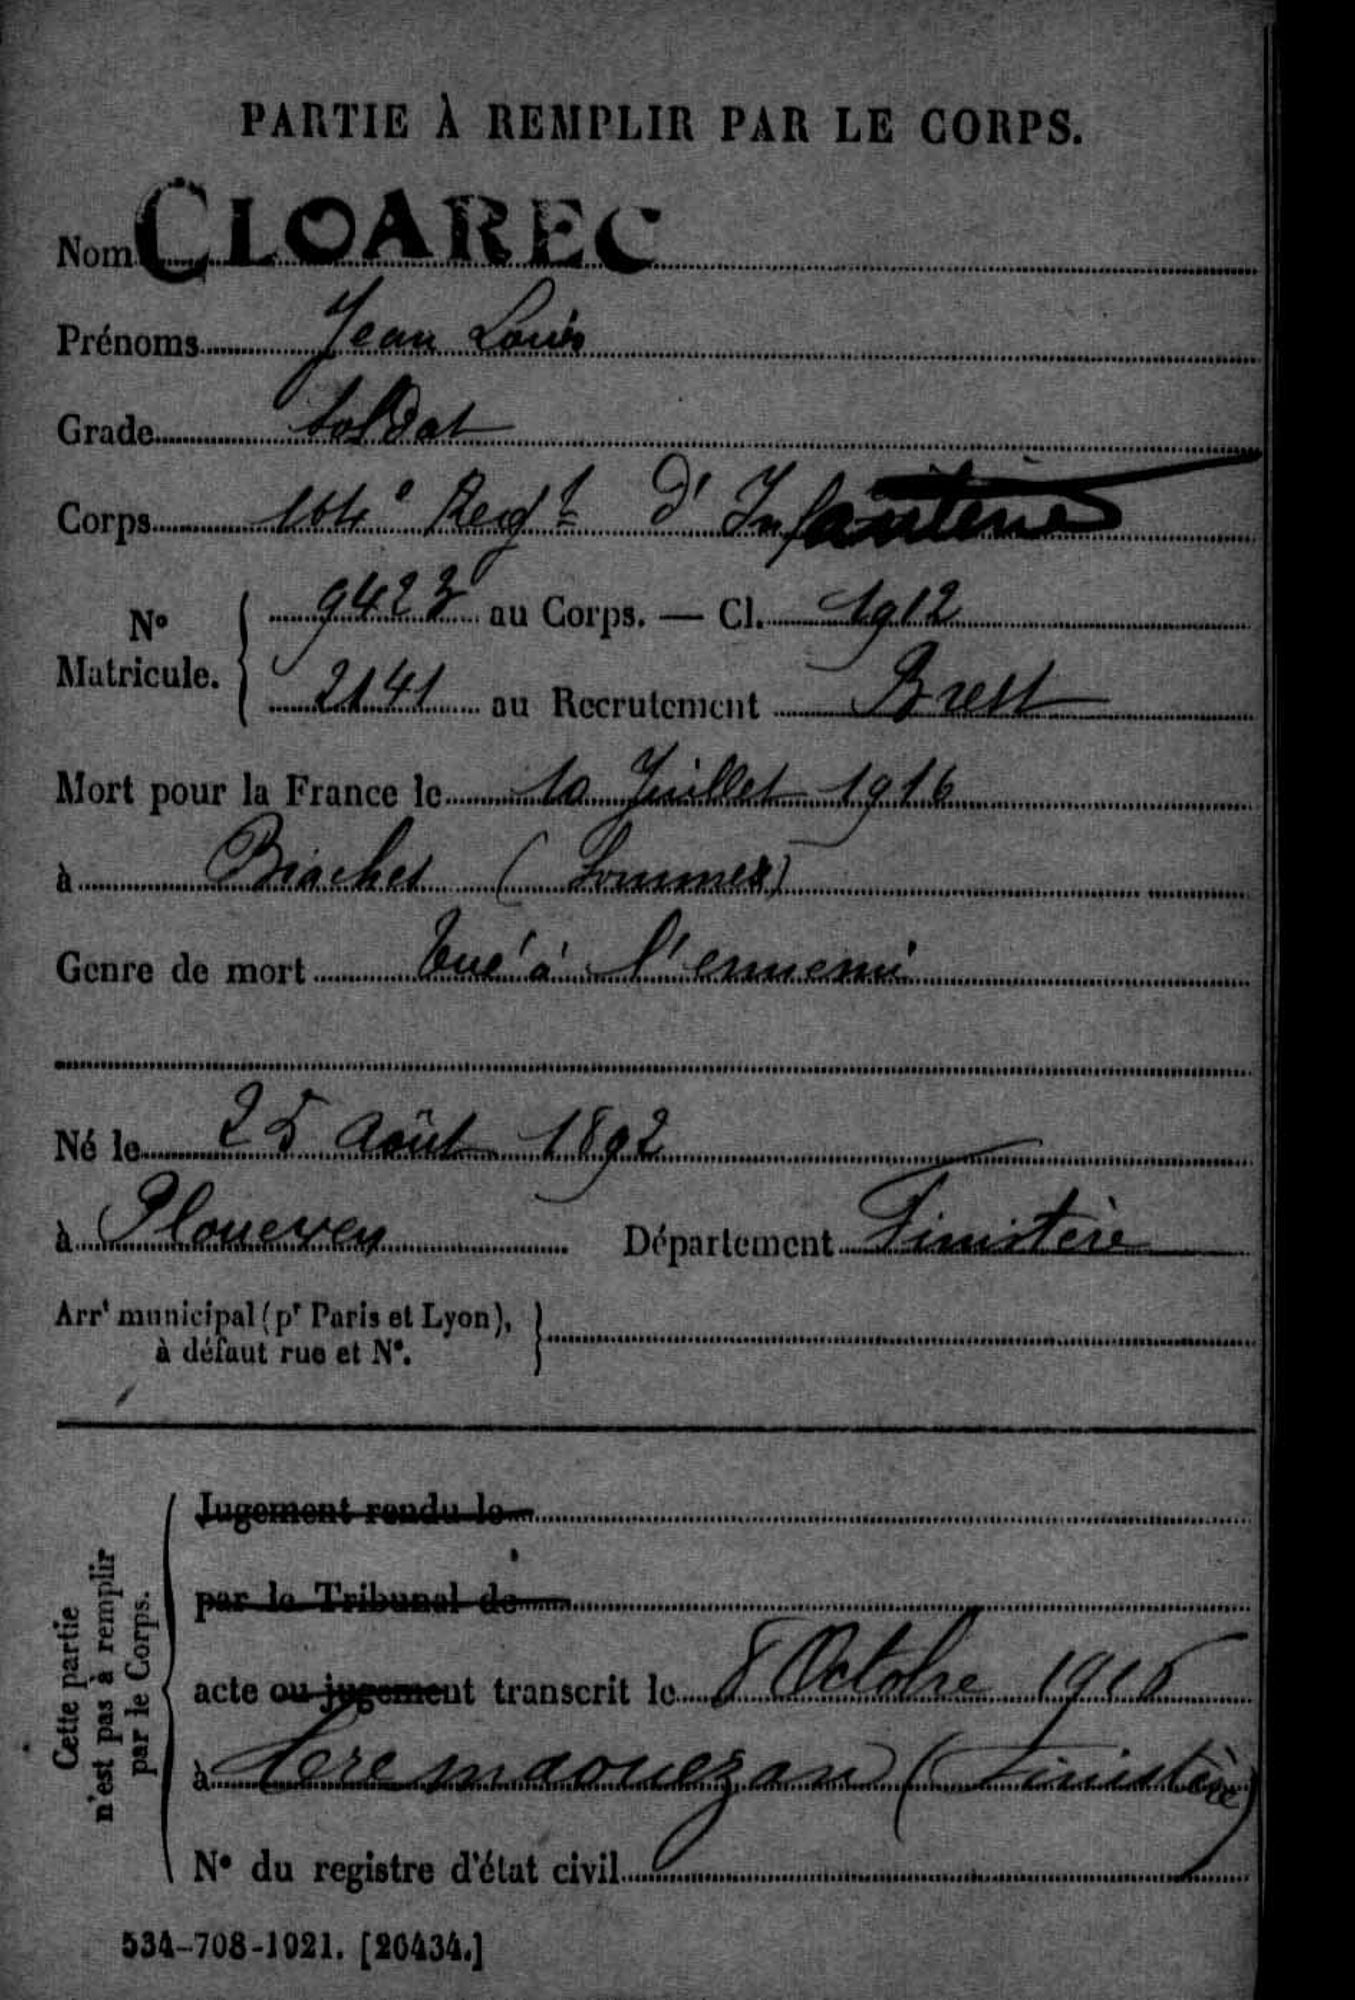 PARTIE À REMPLIR PAR LE CORPS.
Nom CLOAREC
Prénoms Jean Louis
Grade Soldat
Corps Regt d'Infanterie
No Matricule. 9423 au Corps. — Cl. 1912
2141 au Recrutement Brest
Mort pour la France le 10 Juillet 1916
à Biaches (Sommes)
Genre de mort Tué à l'ennemi
Né le 25 Août 1892
à Plouevez Département Finistère
Arrt municipal (pr Paris et Lyon),
à défaut rue et No.
Cette partie
n'est pas à remplir
par le Corps.
Jugement rendu le
par le Tribunal de
acte ou jugement transcrit le 8 Octobre 1916
à (Finistère)
No du registre d'état civil
534-708-1921. [26434.]